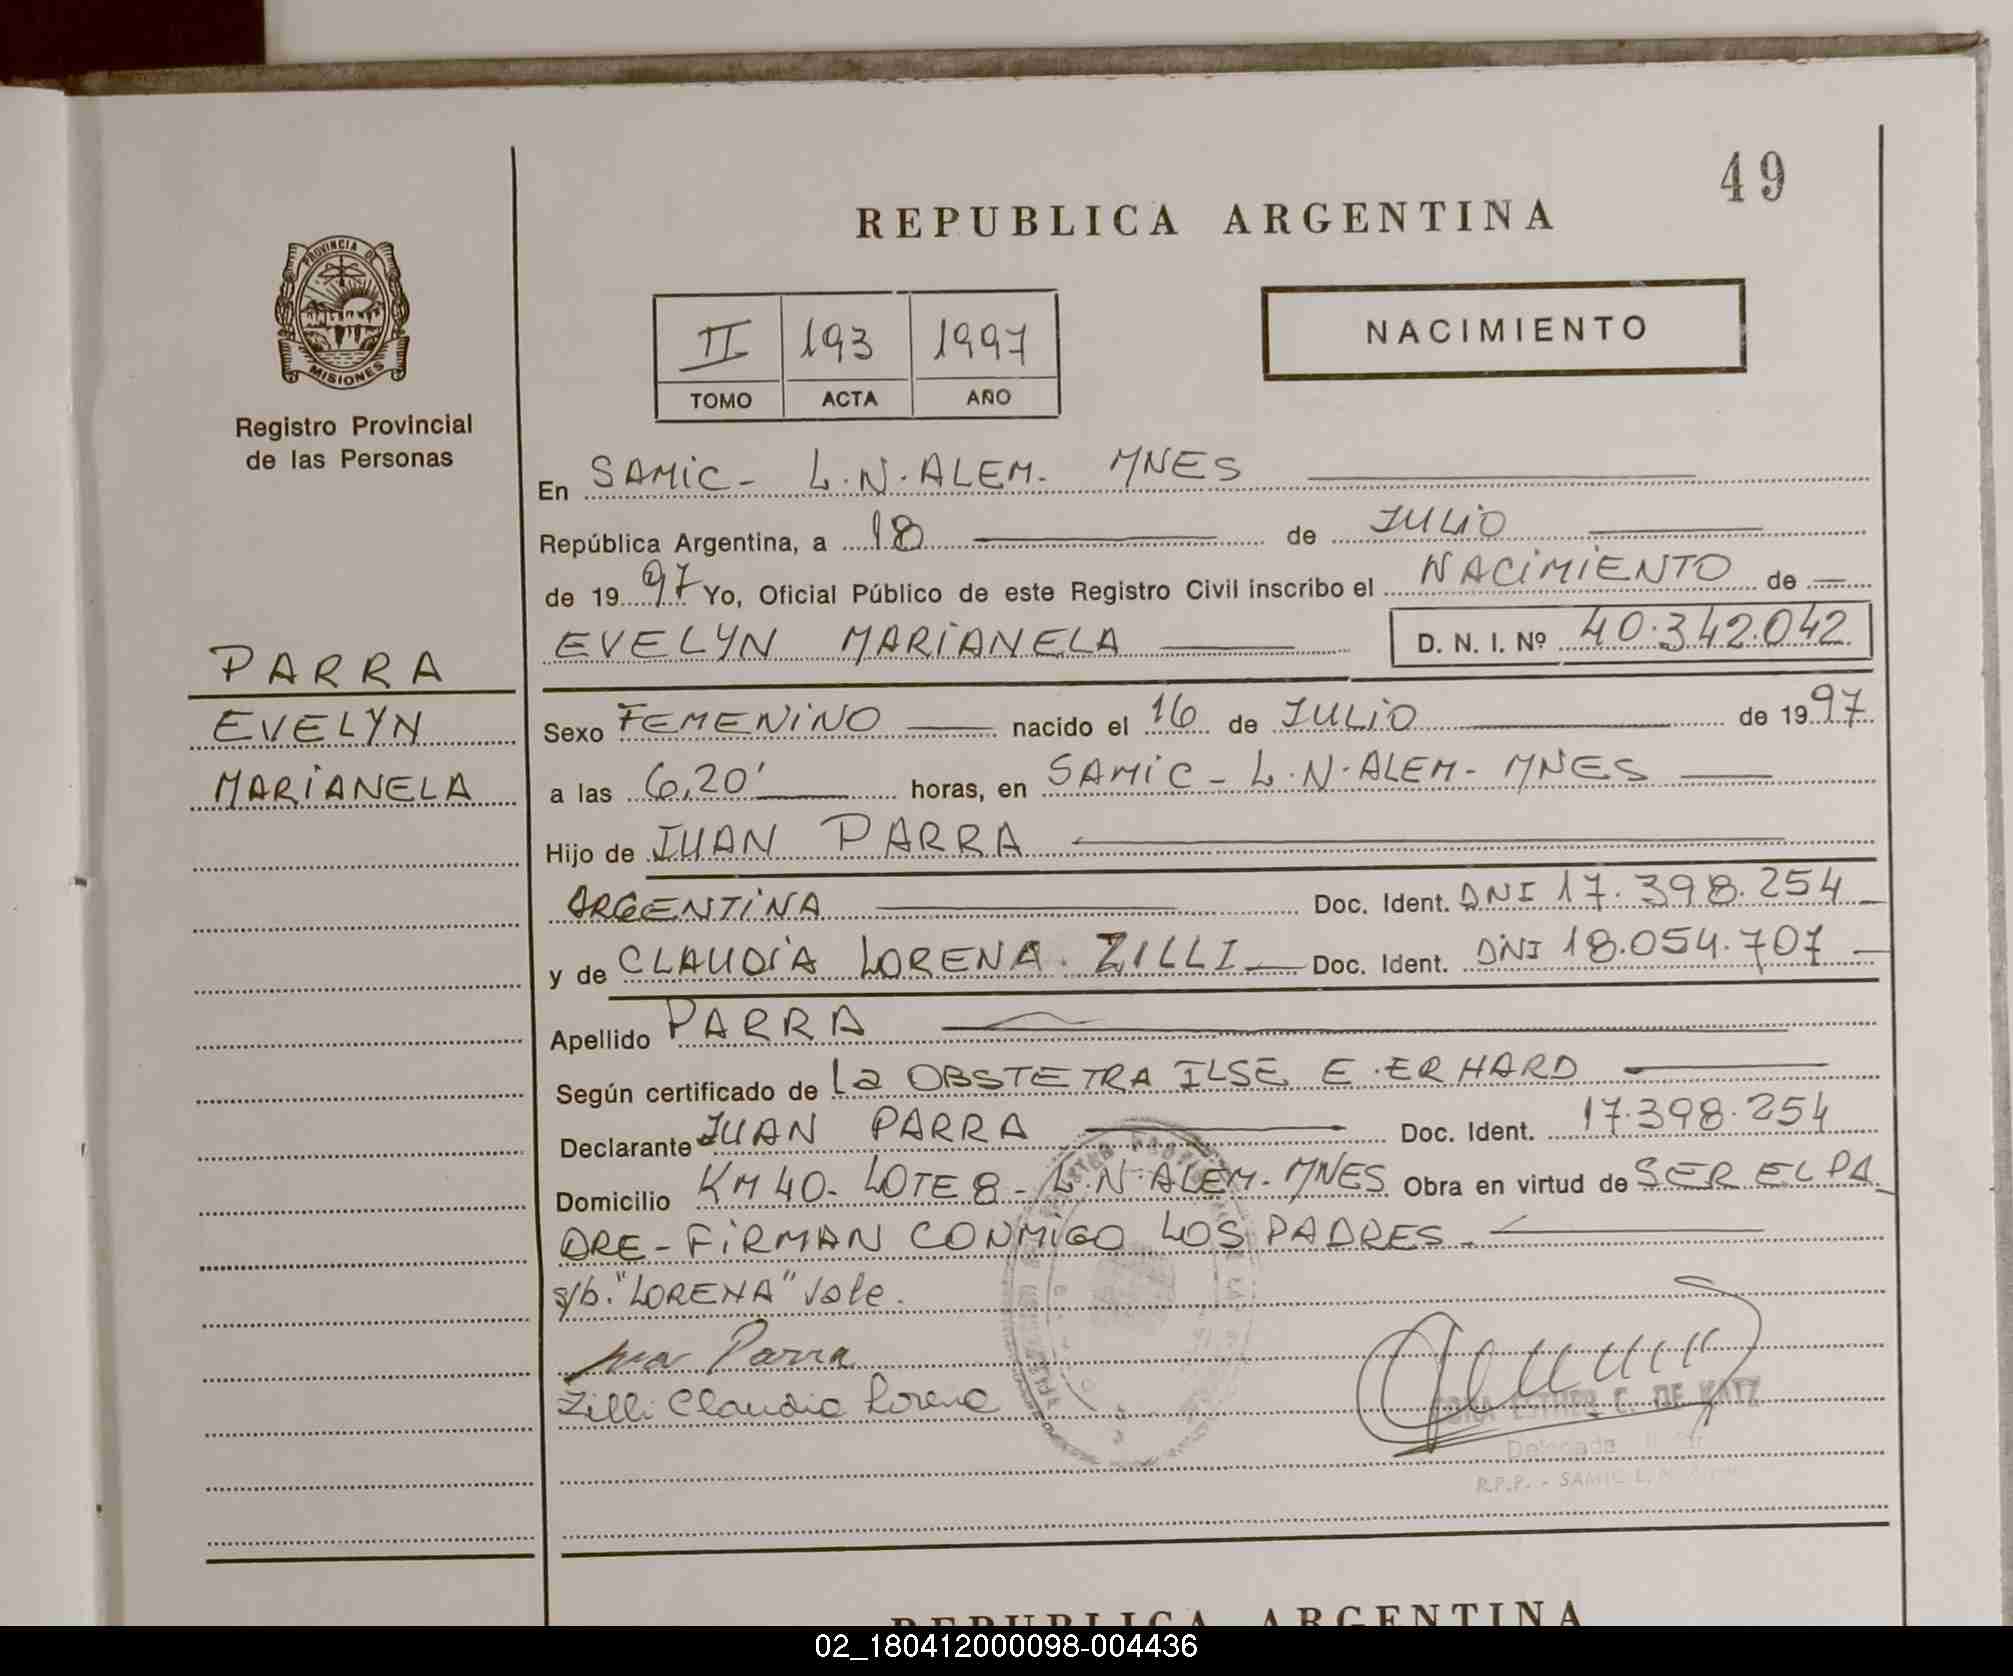 49
REPUBLICA ARGENTINA
PROVINCIA DE
MISIONES
Registro Provincial
de las Personas
II 193 1997
TOMO ACTA AÑO
NACIMIENTO
En SAMIC - L.N. ALEM - MNES
República Argentina, a 18 de JULIO
de 1997 Yo, Oficial Público de este Registro Civil inscribo el NACIMIENTO de
EVELYN MARIANELA D. N. I. Nº 40.342.042
PARRA
EVELYN
MARIANELA
Sexo FEMENINO nacido el 16 de JULIO de 1997
a las 6,20' horas, en SAMIC - L.N. ALEM - MNES
Hijo de JUAN PARRA
ARGENTINA Doc. Ident. DNI 17.398.254
y de CLAUDIA LORENA ZILLI Doc. Ident. DNI 18.054.707
Apellido PARRA
Según certificado de La OBSTETRA ILSE E. ERHARD
Declarante JUAN PARRA Doc. Ident. 17.398.254
Domicilio KM 40 - LOTE 8 - L.N. ALEM - MNES Obra en virtud de SER EL PA
DRE - FIRMAN CONMIGO LOS PADRES.
s/b. "LORENA" Vale.
Juan Parra
Zilli Claudia Lorena
ESTHER C. DE KATZ
R.P.P. - SAMIC L.
REPUBLICA ARGENTINA
02_180412000098-004436